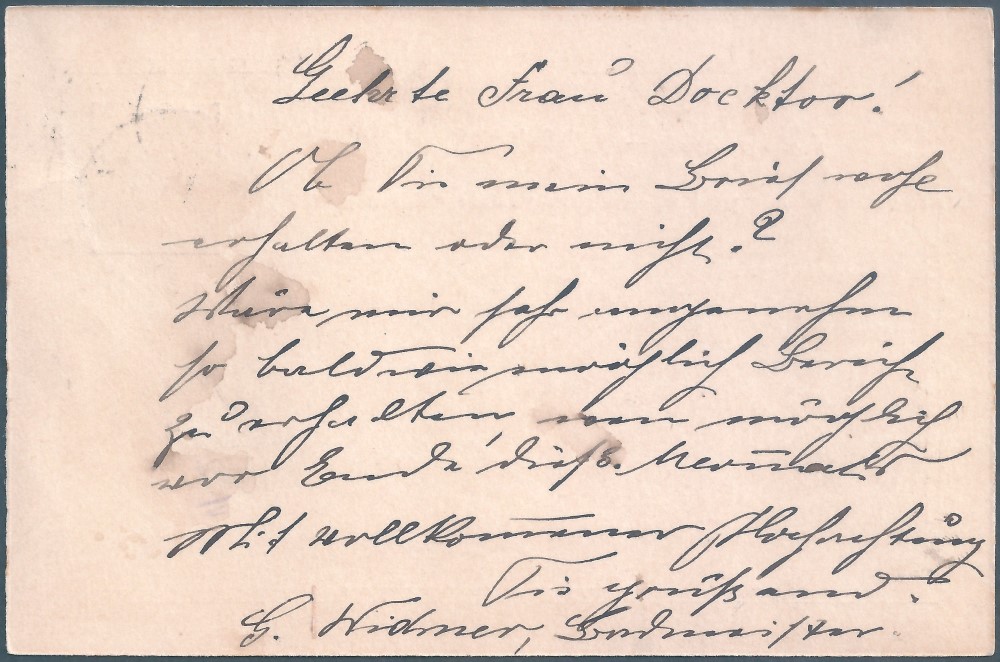 Geehrte Frau Docktor!
Ob Sie mein Brief
erhalten oder nicht.?
Wäre mir sehr angenehm
so bald wie möglich Bericht
zu erhalten wen möglich
vor Ende dieß. Monats
Mit vollkommener Hochachtung
Sie grüßend.
G. Widmer, Badmeister.